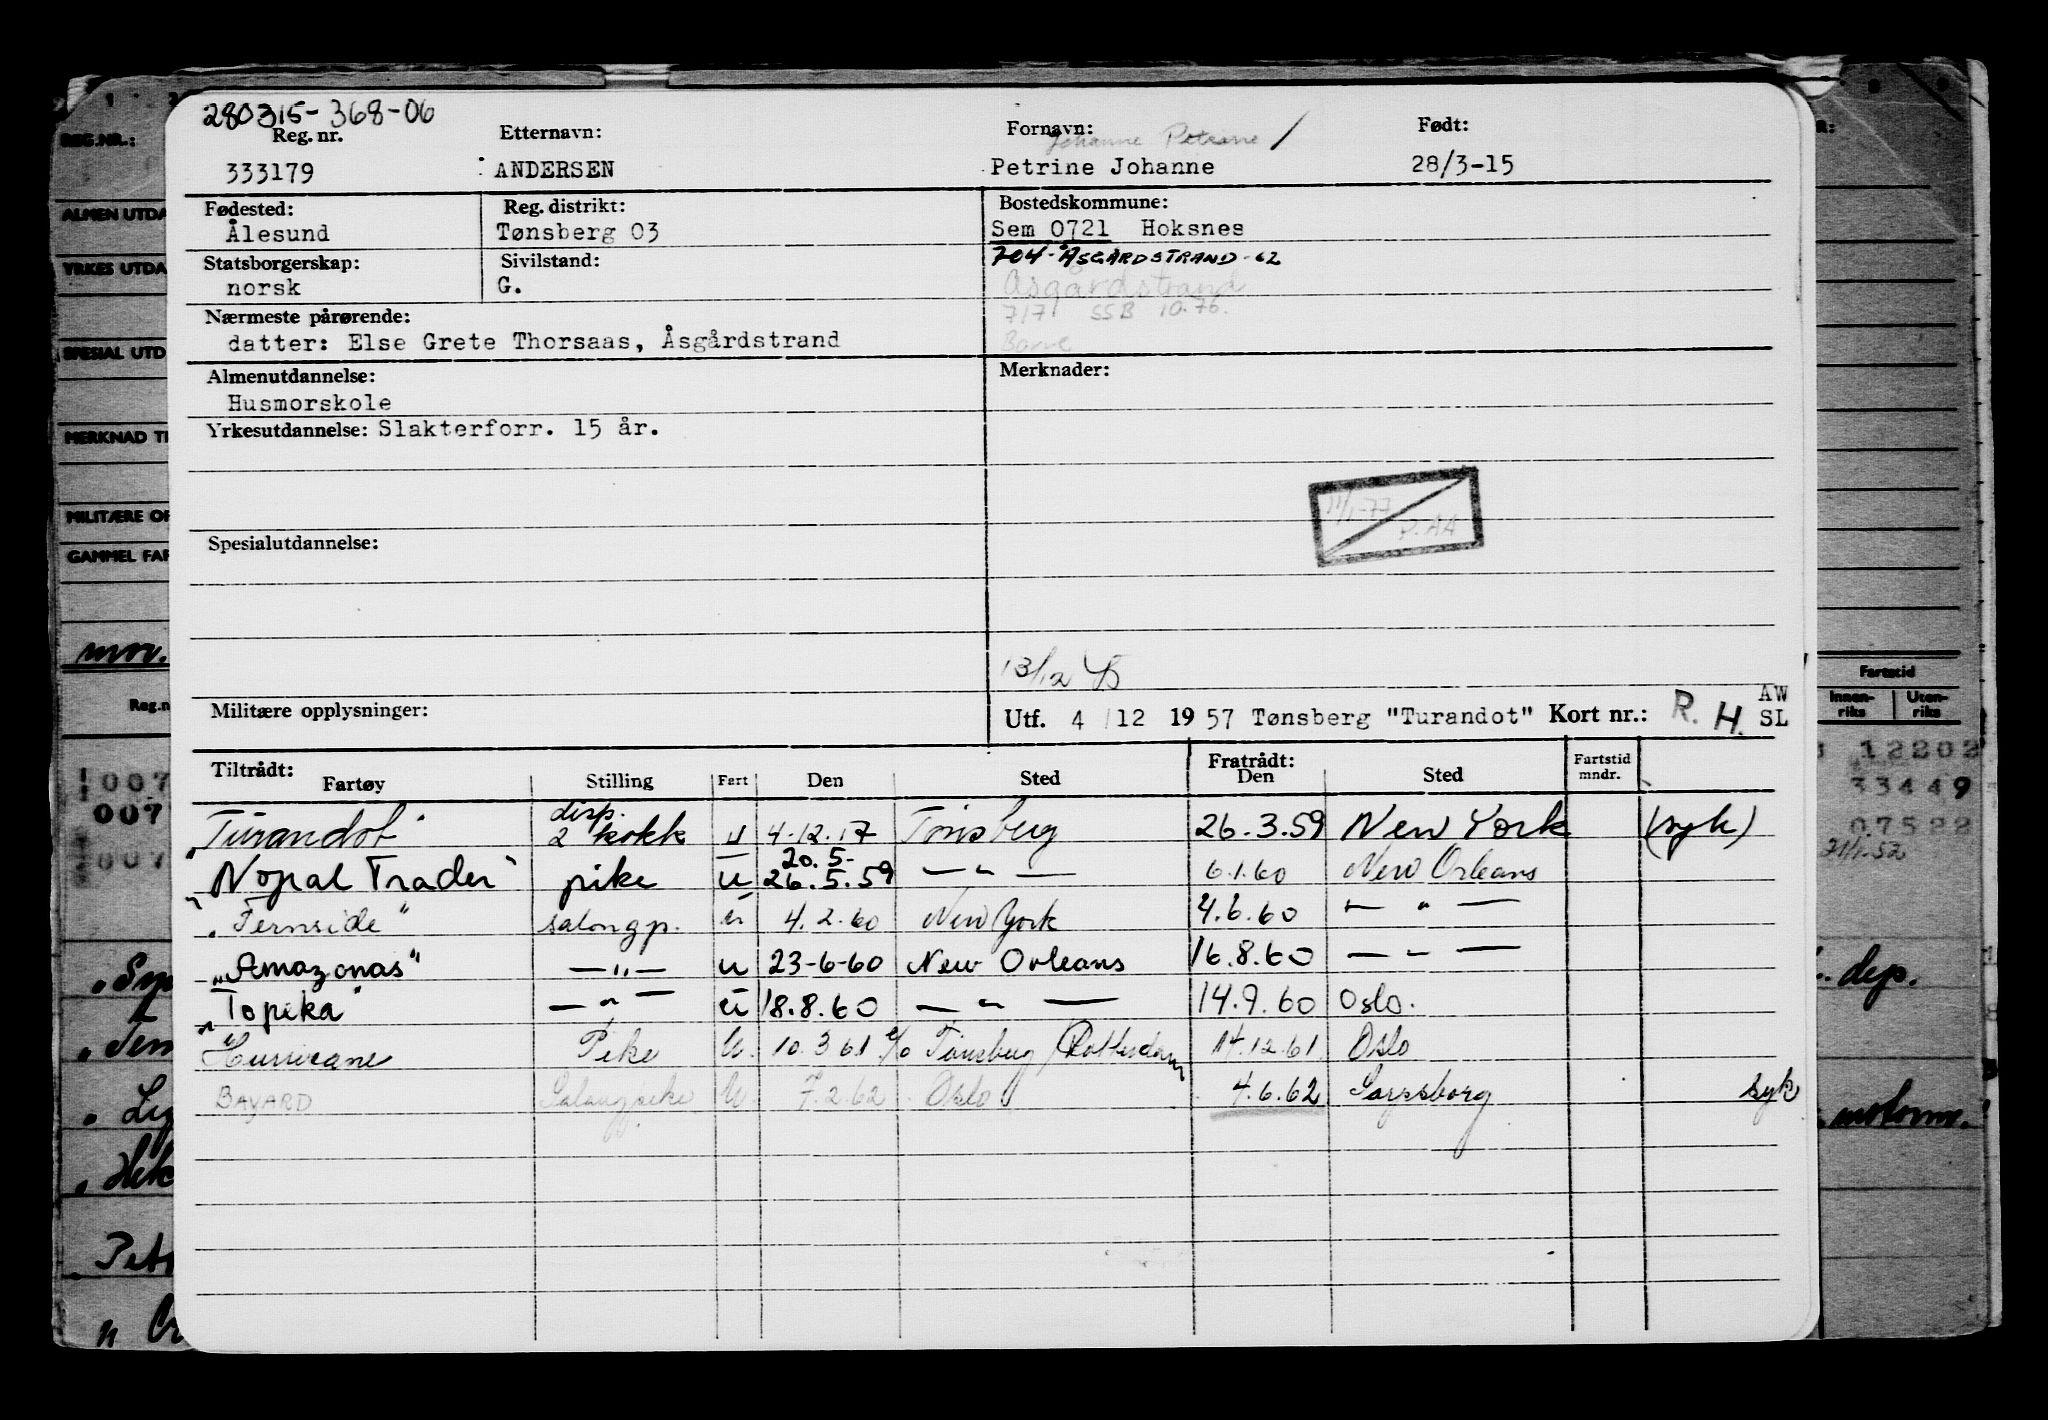 280315-368-06
Reg. nr. Etternavn: Fornavn: Født:
Johanne Petrine /
333179 ANDERSEN Petrine Johanne 28/3-15
Fødested: Reg. distrikt: Bostedskommune:
Ålesund Tønsberg 03 Sem 0721 Hoksnes
Statsborgerskap: Sivilstand: 704-ÅSGÅRDSTRAND-62
norsk G. Åsgårdstrand
7/71 SSB 10.76.
Nærmeste pårørende:
datter: Else Grete Thorsaas, Åsgårdstrand
Borre
Almenutdannelse: Merknader:
Husmorskole
Yrkesutdannelse: Slakterforr. 15 år.
11/1-77
P. AA
Spesialutdannelse:
13/12
Militære opplysninger: Utf. 4/12 1957 Tønsberg "Turandot" Kort nr.: R. H. AW SL
Tiltrådt: Fratrådt: Fartstid mndr.
Fartøy Stilling Fart Den Sted Den Sted
"Turandot" disp. 2 kokk u 4.12.17 Tønsberg 26.3.59 New York (syk)
20.5-
"Nopal Trader" pike u 26.5.59 — " — 6.1.60 New Orleans
"Fernside" salongp. u 4.2.60 New York 4.6.60 — " —
"Amazonas" — " — u 23-6-60 New Orleans 16.8.60 — " —
"Topeka" — " — u 18.8.60 — " — 14.9.60 Oslo.
Hurricane Pike U. 10.3.61 e/o Tønsberg/Rotterdam 14.12.61 Oslo
BAYARD Salongpike U. 7.2.62 Oslo 4.6.62 Sarpsborg syk
REG.NR.:
ALMEN UTDA
YRKES UTDA
SPESIAL UTD
MERKNAD TI
MILITÆRE OP
GAMMEL FAR
mor.
Reg.n
007
007
007
Fartstid
Innen-riks Uten-riks
12202
33449
07522
21/1.52
dep.
motorm.